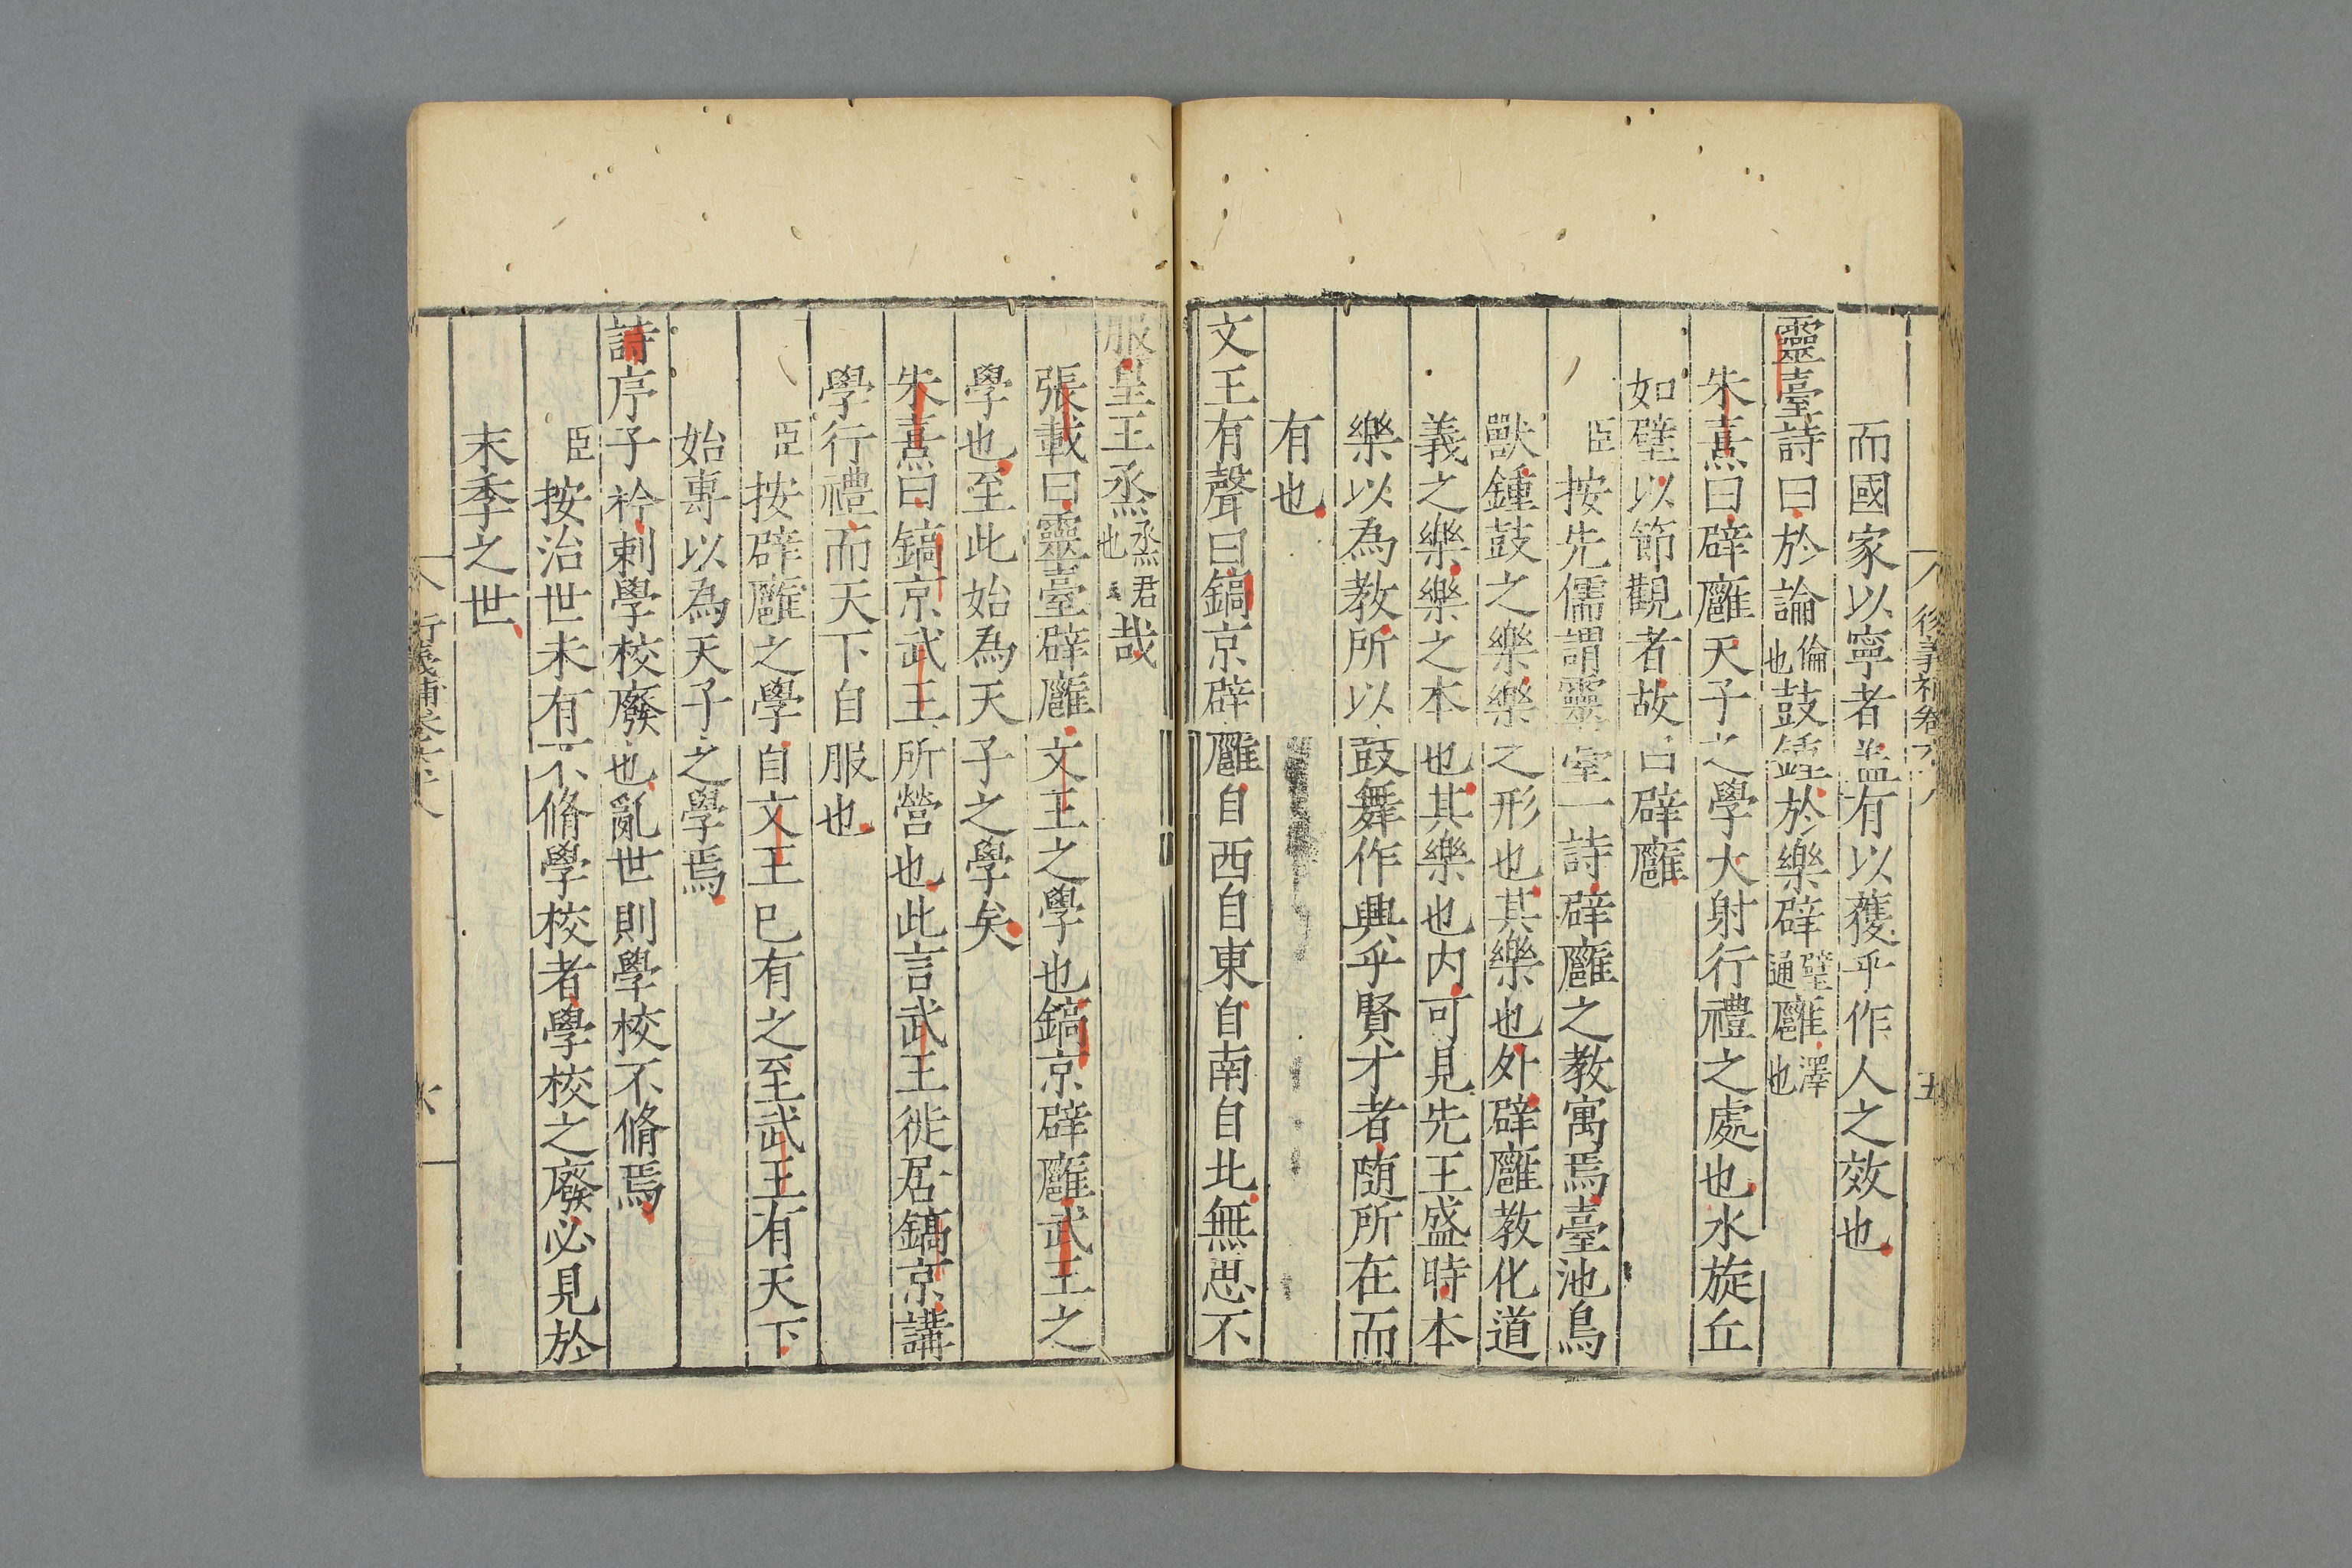 而國家以寧者盖有以獲乎作人之效也
靈臺詩曰於論倫也鼓鍾於樂辟璧通廱澤也
朱熹曰辟廱天子之學大射行禮之處也水旋丘
如璧以節觀者故曰辟廱
臣按先儒謂靈臺一詩辟廱之教寓焉臺池鳥
獸鍾鼓之樂樂之形也其樂也外辟廱教化道
義之樂樂之本也其樂也内可見先王盛時本
樂以為教所以鼓舞作興乎賢才者随所在而
有也
文王有聲曰鎬京辟廱自西自東自南自北無思不
服皇王烝烝君也哉
張載曰靈臺辟廱文王之學也鎬京辟廱武王之
學也至此始為天子之學矣
朱熹曰鎬京武王所營也此言武王徙居鎬京講
學行禮而天下自服也
臣按辟廱之學自文王已有之至武王有天下
始專以為天子之學焉
詩序子衿刺學校廢也亂世則學校不脩焉
臣按治世未有不脩學校者學校之廢必見於
末季之世